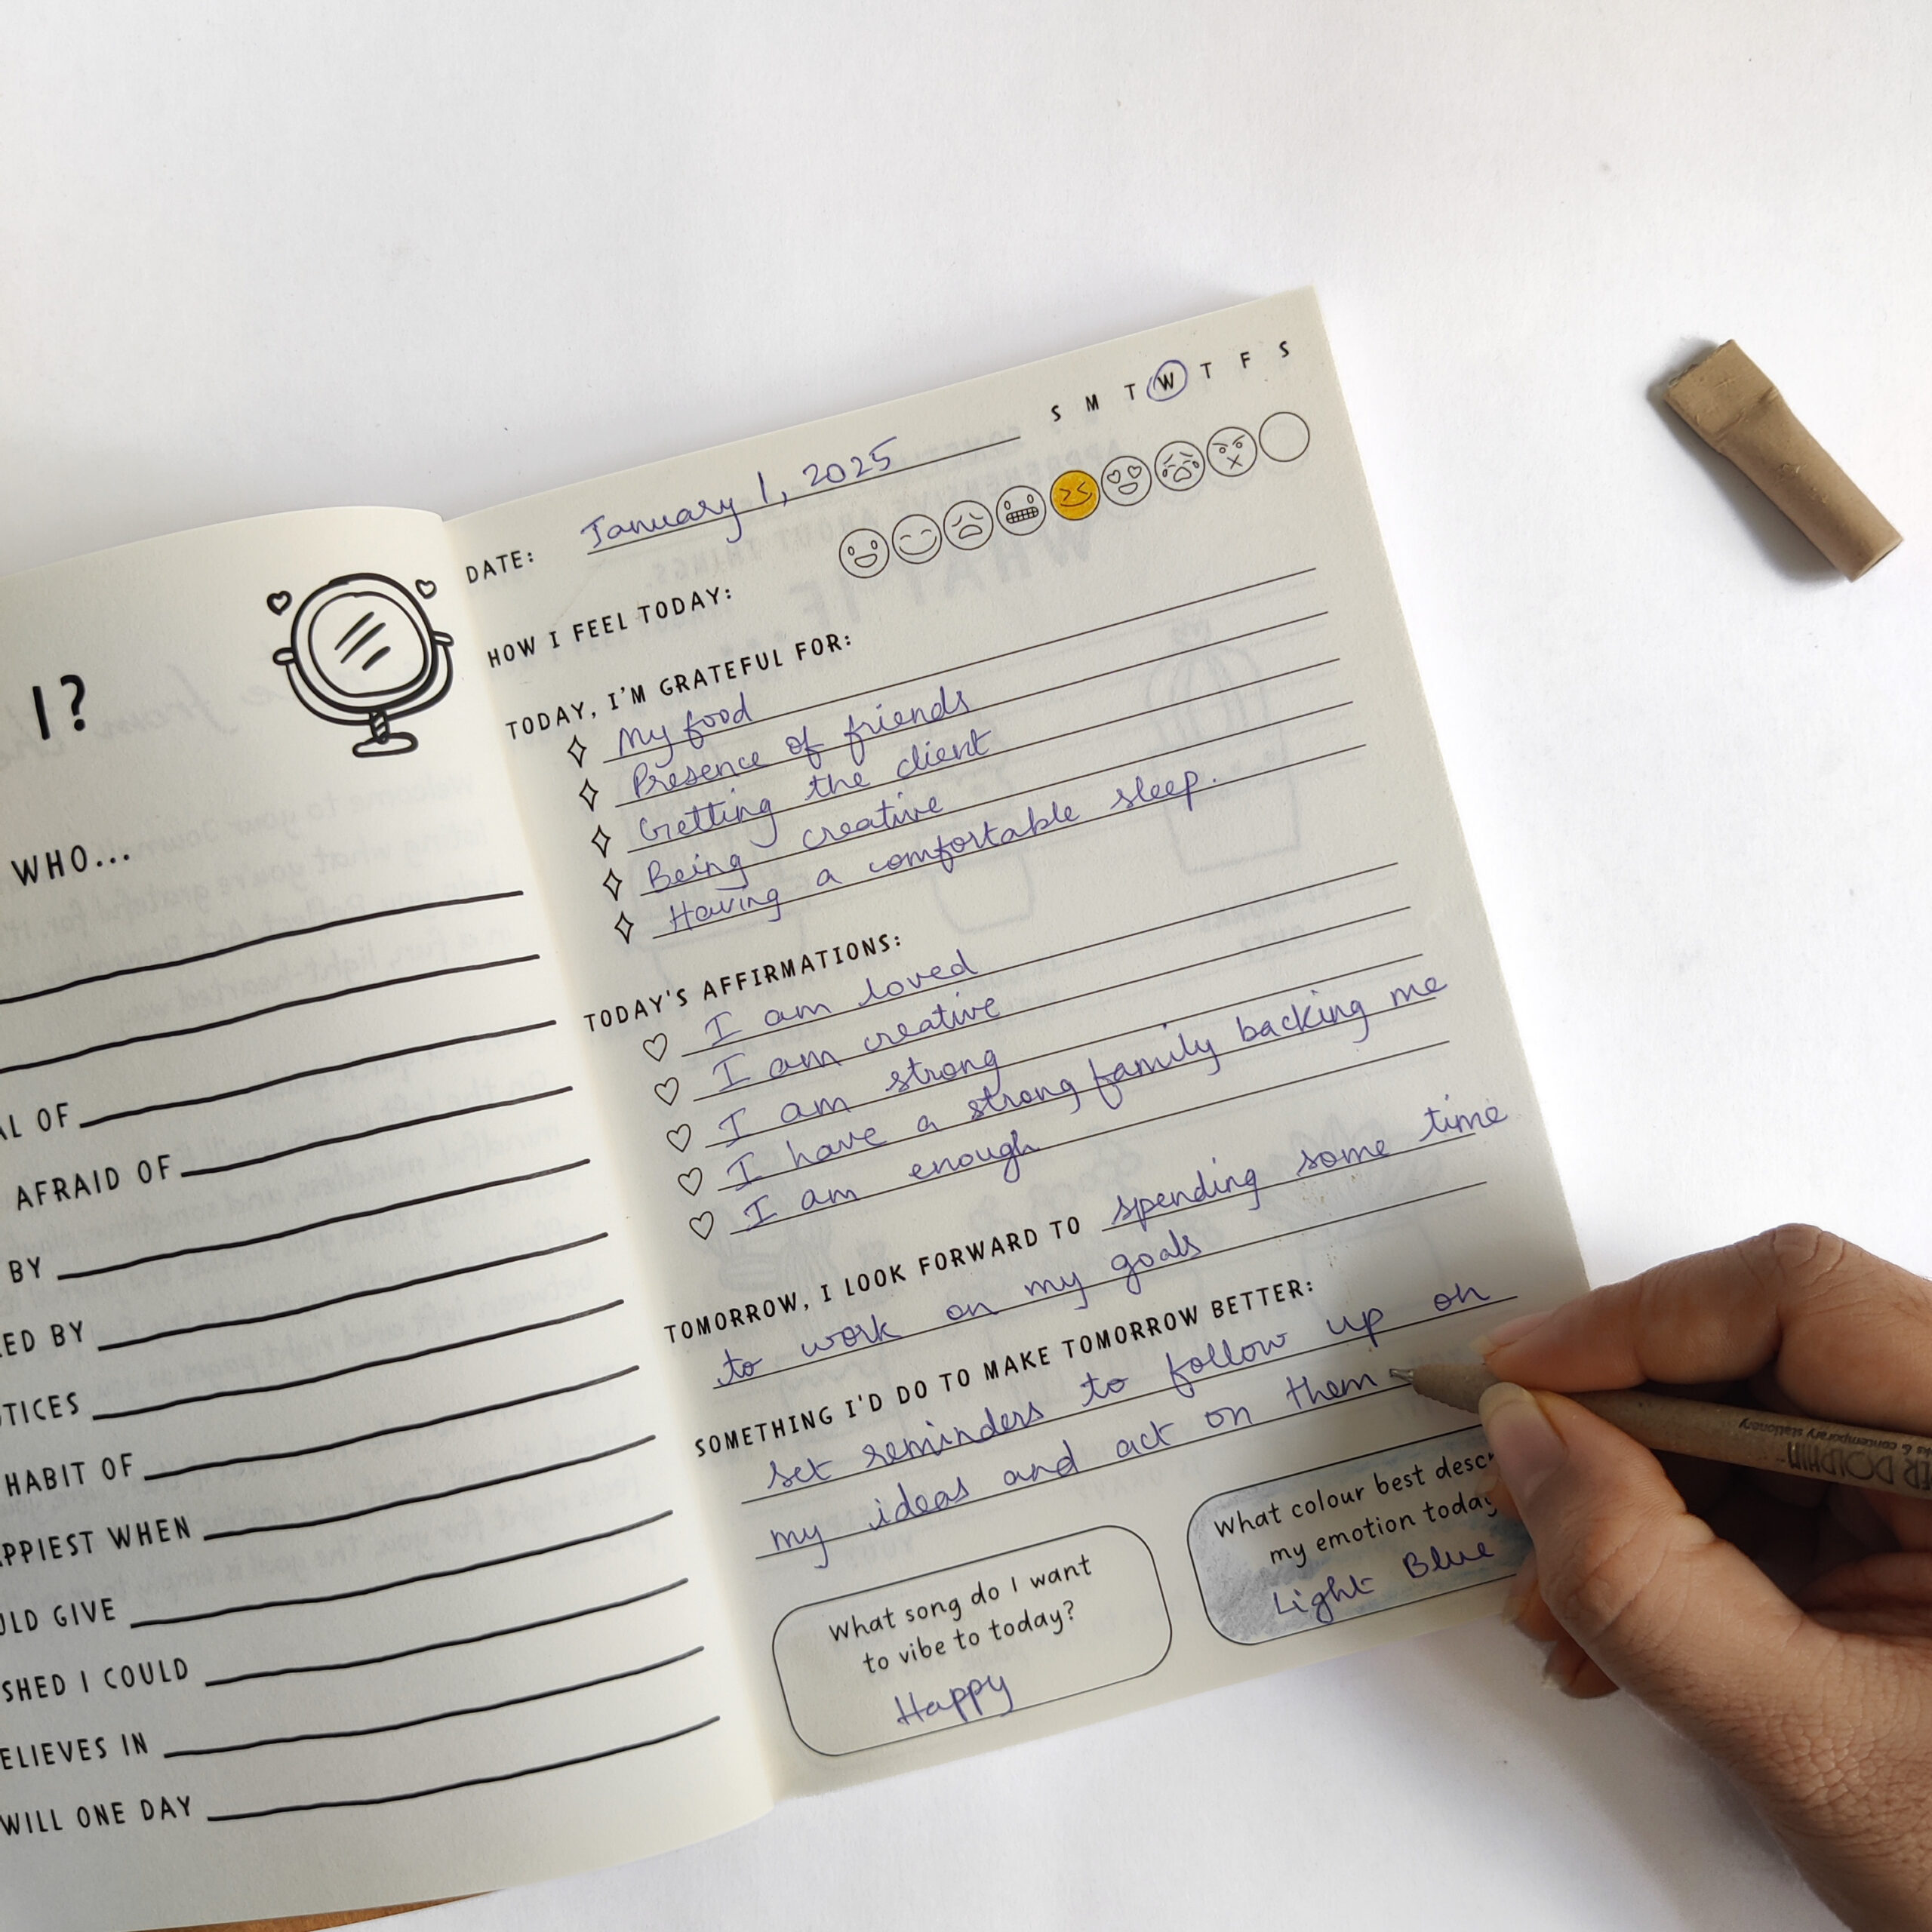 I?
WHO...
AL OF
AFRAID OF
BY
ED BY
TICES
HABIT OF
APPIEST WHEN
ULD GIVE
SHED I COULD
ELIEVES IN
WILL ONE DAY
S M T W T F S
DATE: January 1, 2025
HOW I FEEL TODAY:
TODAY, I'M GRATEFUL FOR:
My food
Presence of friends
Getting the client
Being creative
Having a comfortable sleep.
TODAY'S AFFIRMATIONS:
I am loved
I am creative
I am strong
I have a strong family backing me
I am enough
TOMORROW, I LOOK FORWARD TO spending some time
to work on my goals
SOMETHING I'D DO TO MAKE TOMORROW BETTER:
set reminders to follow up on
my ideas and act on them
What song do I want
to vibe to today?
Happy
What colour best descr
my emotion today
Light Blue
ER DOLPHIN
ks & contemporary stationery